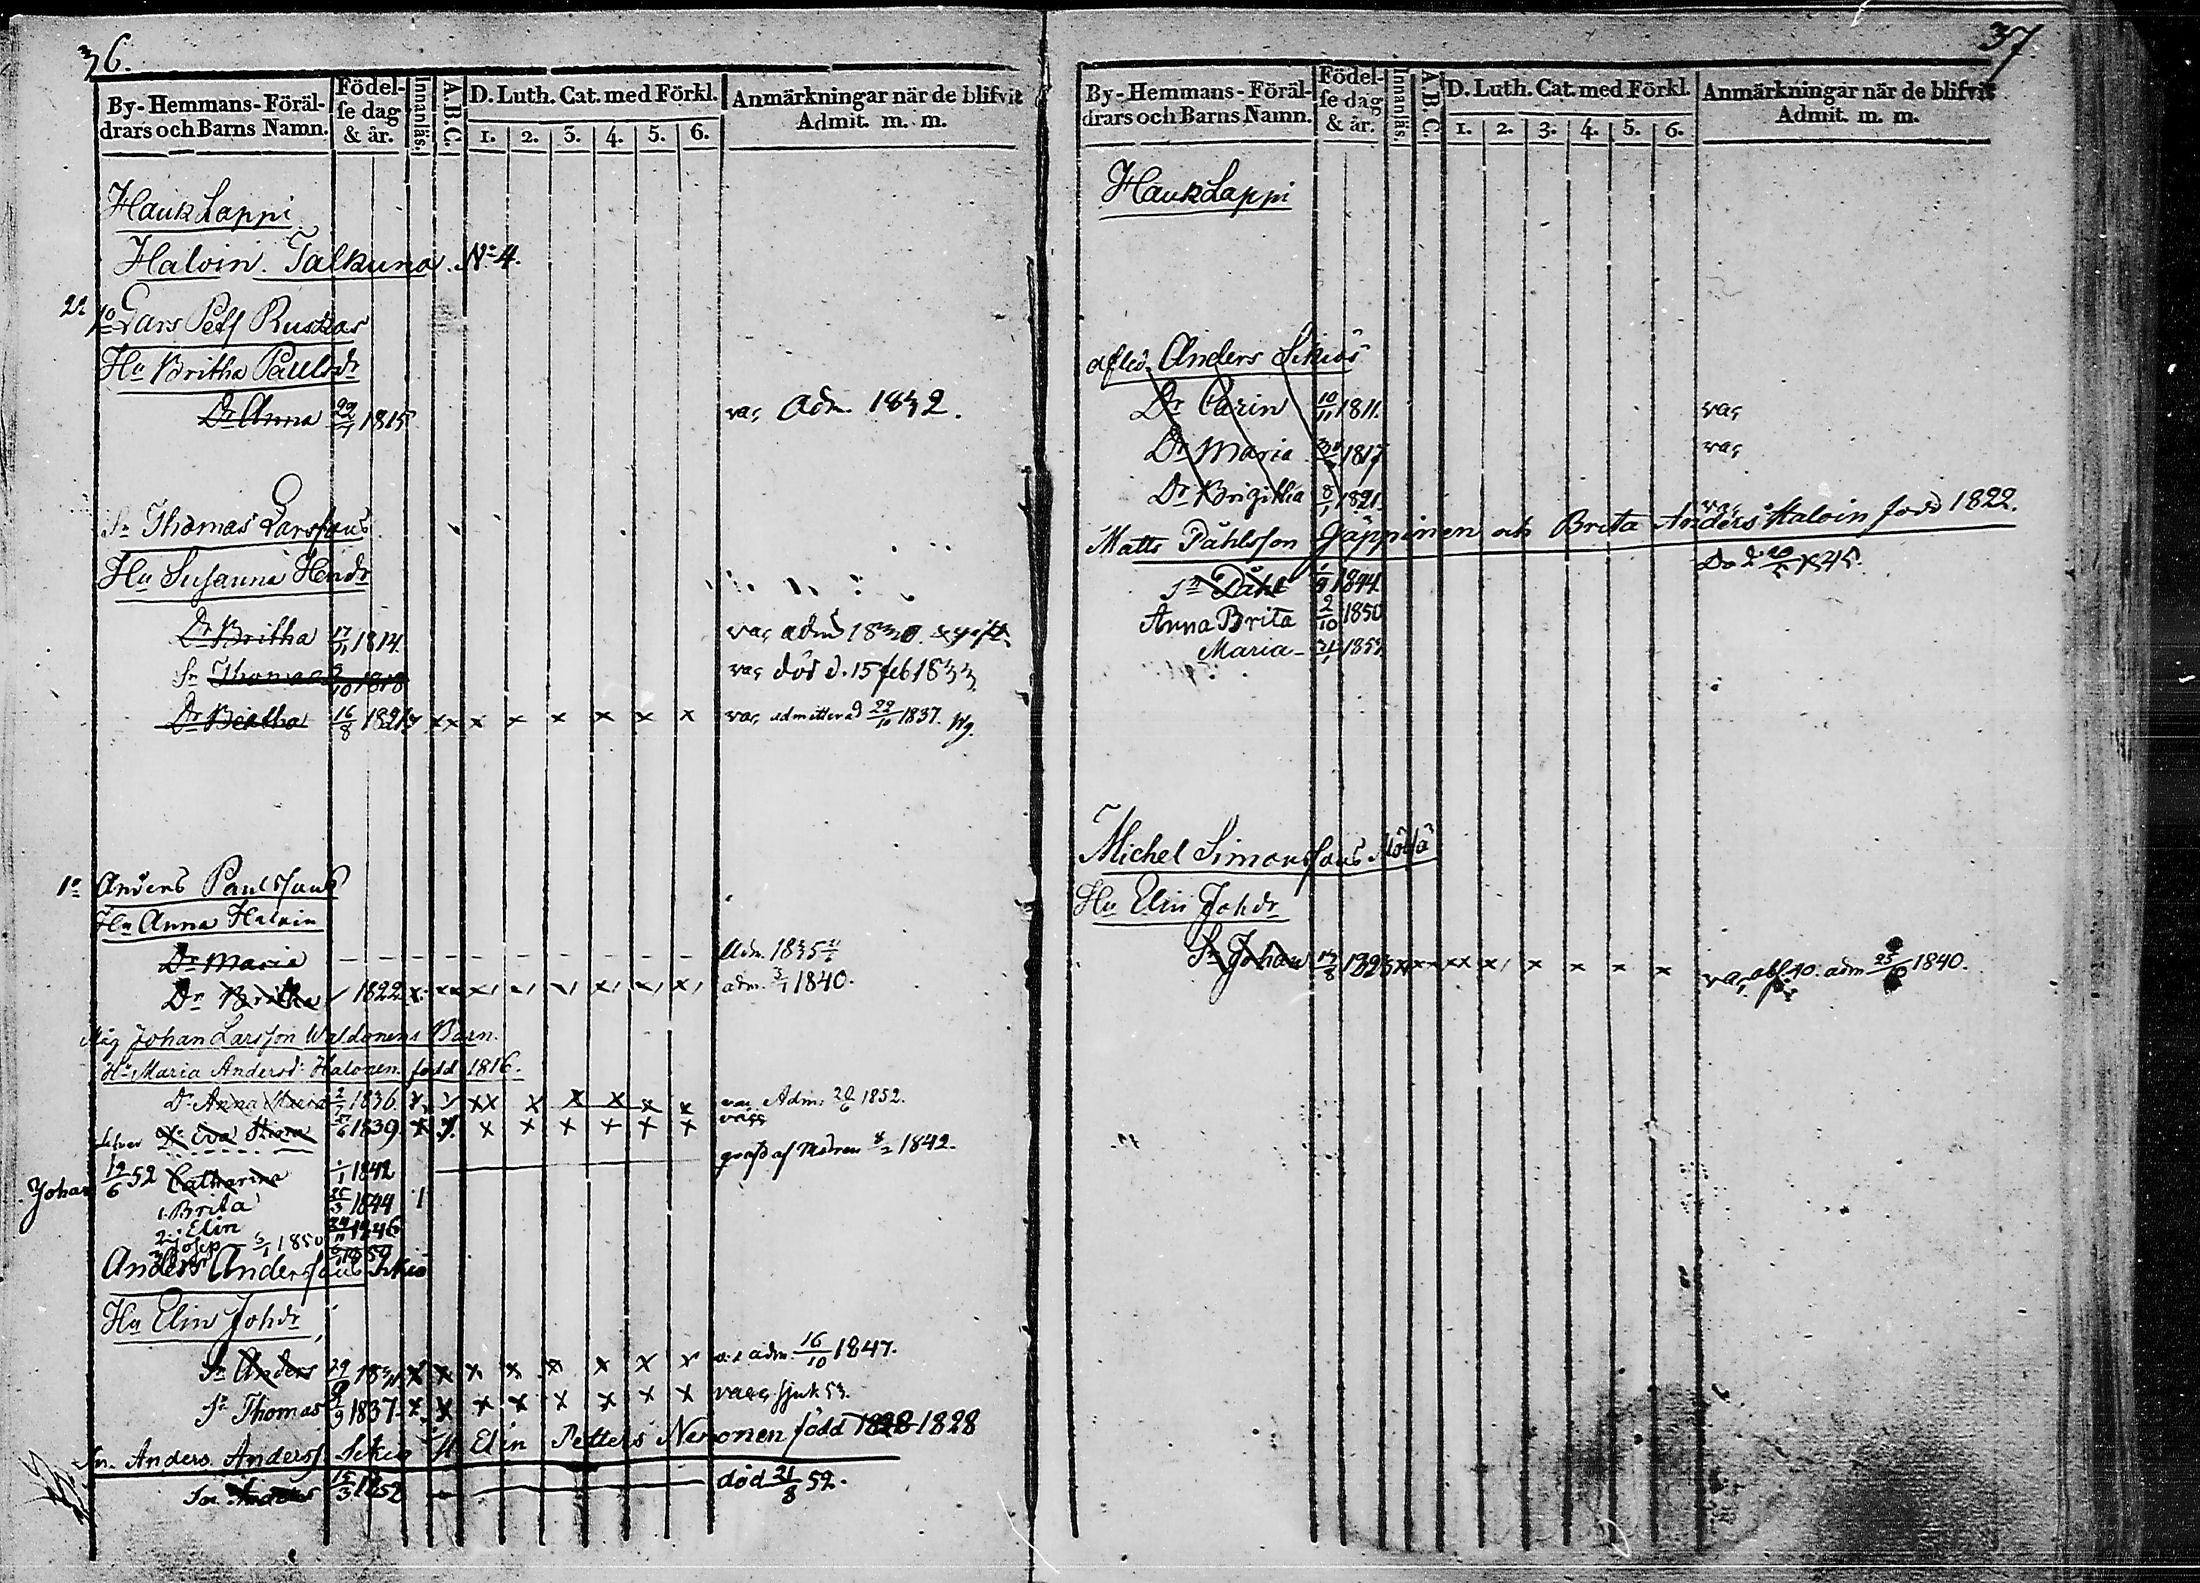 36.
By-Hemmans-Föräl-
drars och Barns Namn.
Födel-
se dag
& år.
Innanläs.
A.B.C.
D. Luth. Cat. med Förkl.
1. 2. 3. 4. 5. 6.
Anmärkningar när de blifvit
Admit. m. m.
HaukLappi
Haloin. Talkuna. No 4.
Lars Pett Ruskas
Hu Britha Paulsdr
Dr Anna 1815 vac Adm. 1832.
Sn Thomas Larssons
Hu Susanna Hendr
Dr Britha 17/11 1814. vac adm 1830.
Sn Thomas 1818 vac död d. 15 feb 1833
Dr Beatha 16/8 1821 x x x x x x vac admitterad 22/10 1837.
1o Anders Paulssons
Hu Anna Haloin
Dr Maria Adm. 1835
Dr Britha 1822 adm. 3/1 1840.
Måg Johan Larsson Waldonens Barn.
Hu Maria Andersd. Halonen född 1816.
Dr Anna Maria 1836 x x x x x x Adm. 20/6 1852.
Dr Eva Stina 1839 x x x x x x
Johan 19/6 52 Catharina 1/1 1842 8/2 1842.
1. Brita 1844 1
2. Elin 1846
Josep 1850
Anders Anderssons Sikiö
Hu Elin Johdr
Sn Anders 29 x x x x x x x x adm. 16/10 1847.
Sn Thomas 1837 x x x x x x x x sjuk 53.
Sn. Anders Anderss Sikiö H Elin Petters Neuonen född 1828 1828
Sn Anders 15/3 1852 död 21/8 52.
37
By-Hemmans-Föräl-
drars och Barns Namn.
Födel-
se dag
& år.
Innanläs.
A.B.C.
D. Luth. Cat. med Förkl.
1. 2. 3. 4. 5. 6.
Anmärkningar när de blifvit
Admit. m. m.
HaukLappi
afled. Anders Sikiös
Dr Carin 10/11 1811. vac
Dr Maria 1817 vac
Dr Brigitha 8/1 1821. vac
Matts Påhlsson Jäppinen och Brita Anders Haloin född 1822.
Sn Påhl 1844 1845.
Anna Brita 2/10 1850
Maria
Michel Simonssons
Hu Elin Johdr
Sn Johan x x x x x x adm 1840.